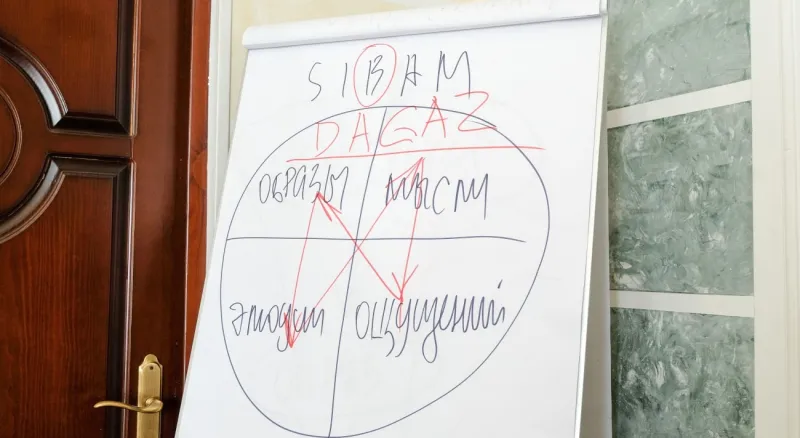 SIBAM
DAGAZ
ОБРАЗЫ
МЫСЛИ
эмоции
ощущений